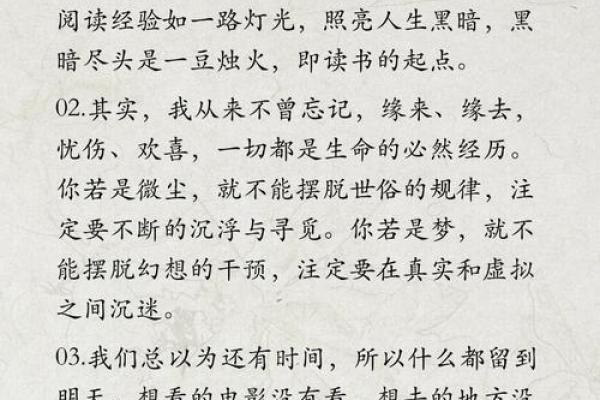 阅读经验如一路灯光，照亮人生黑暗，黑
暗尽头是一豆烛火，即读书的起点。
02.其实，我从来不曾忘记，缘来、缘去，
忧伤、欢喜，一切都是生命的必然经历。
你若是微尘，就不能摆脱世俗的规律，注
定要不断的沉浮与寻觅。你若是梦，就不
能摆脱幻想的干预，注定要在真实和虚拟
之间沉迷。
03.我们总以为还有时间，所以什么都留到
明天，想看的电影没有看，想去的地方没